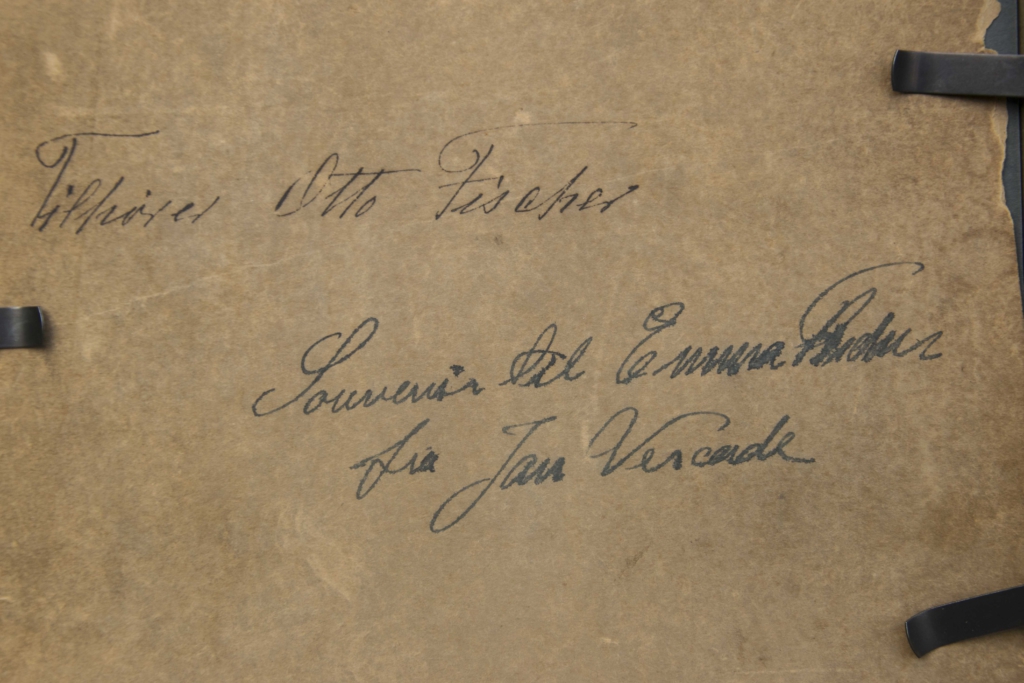 Tilhører Otto Fischer
Souvenir til Emma
fra Jan Vercade